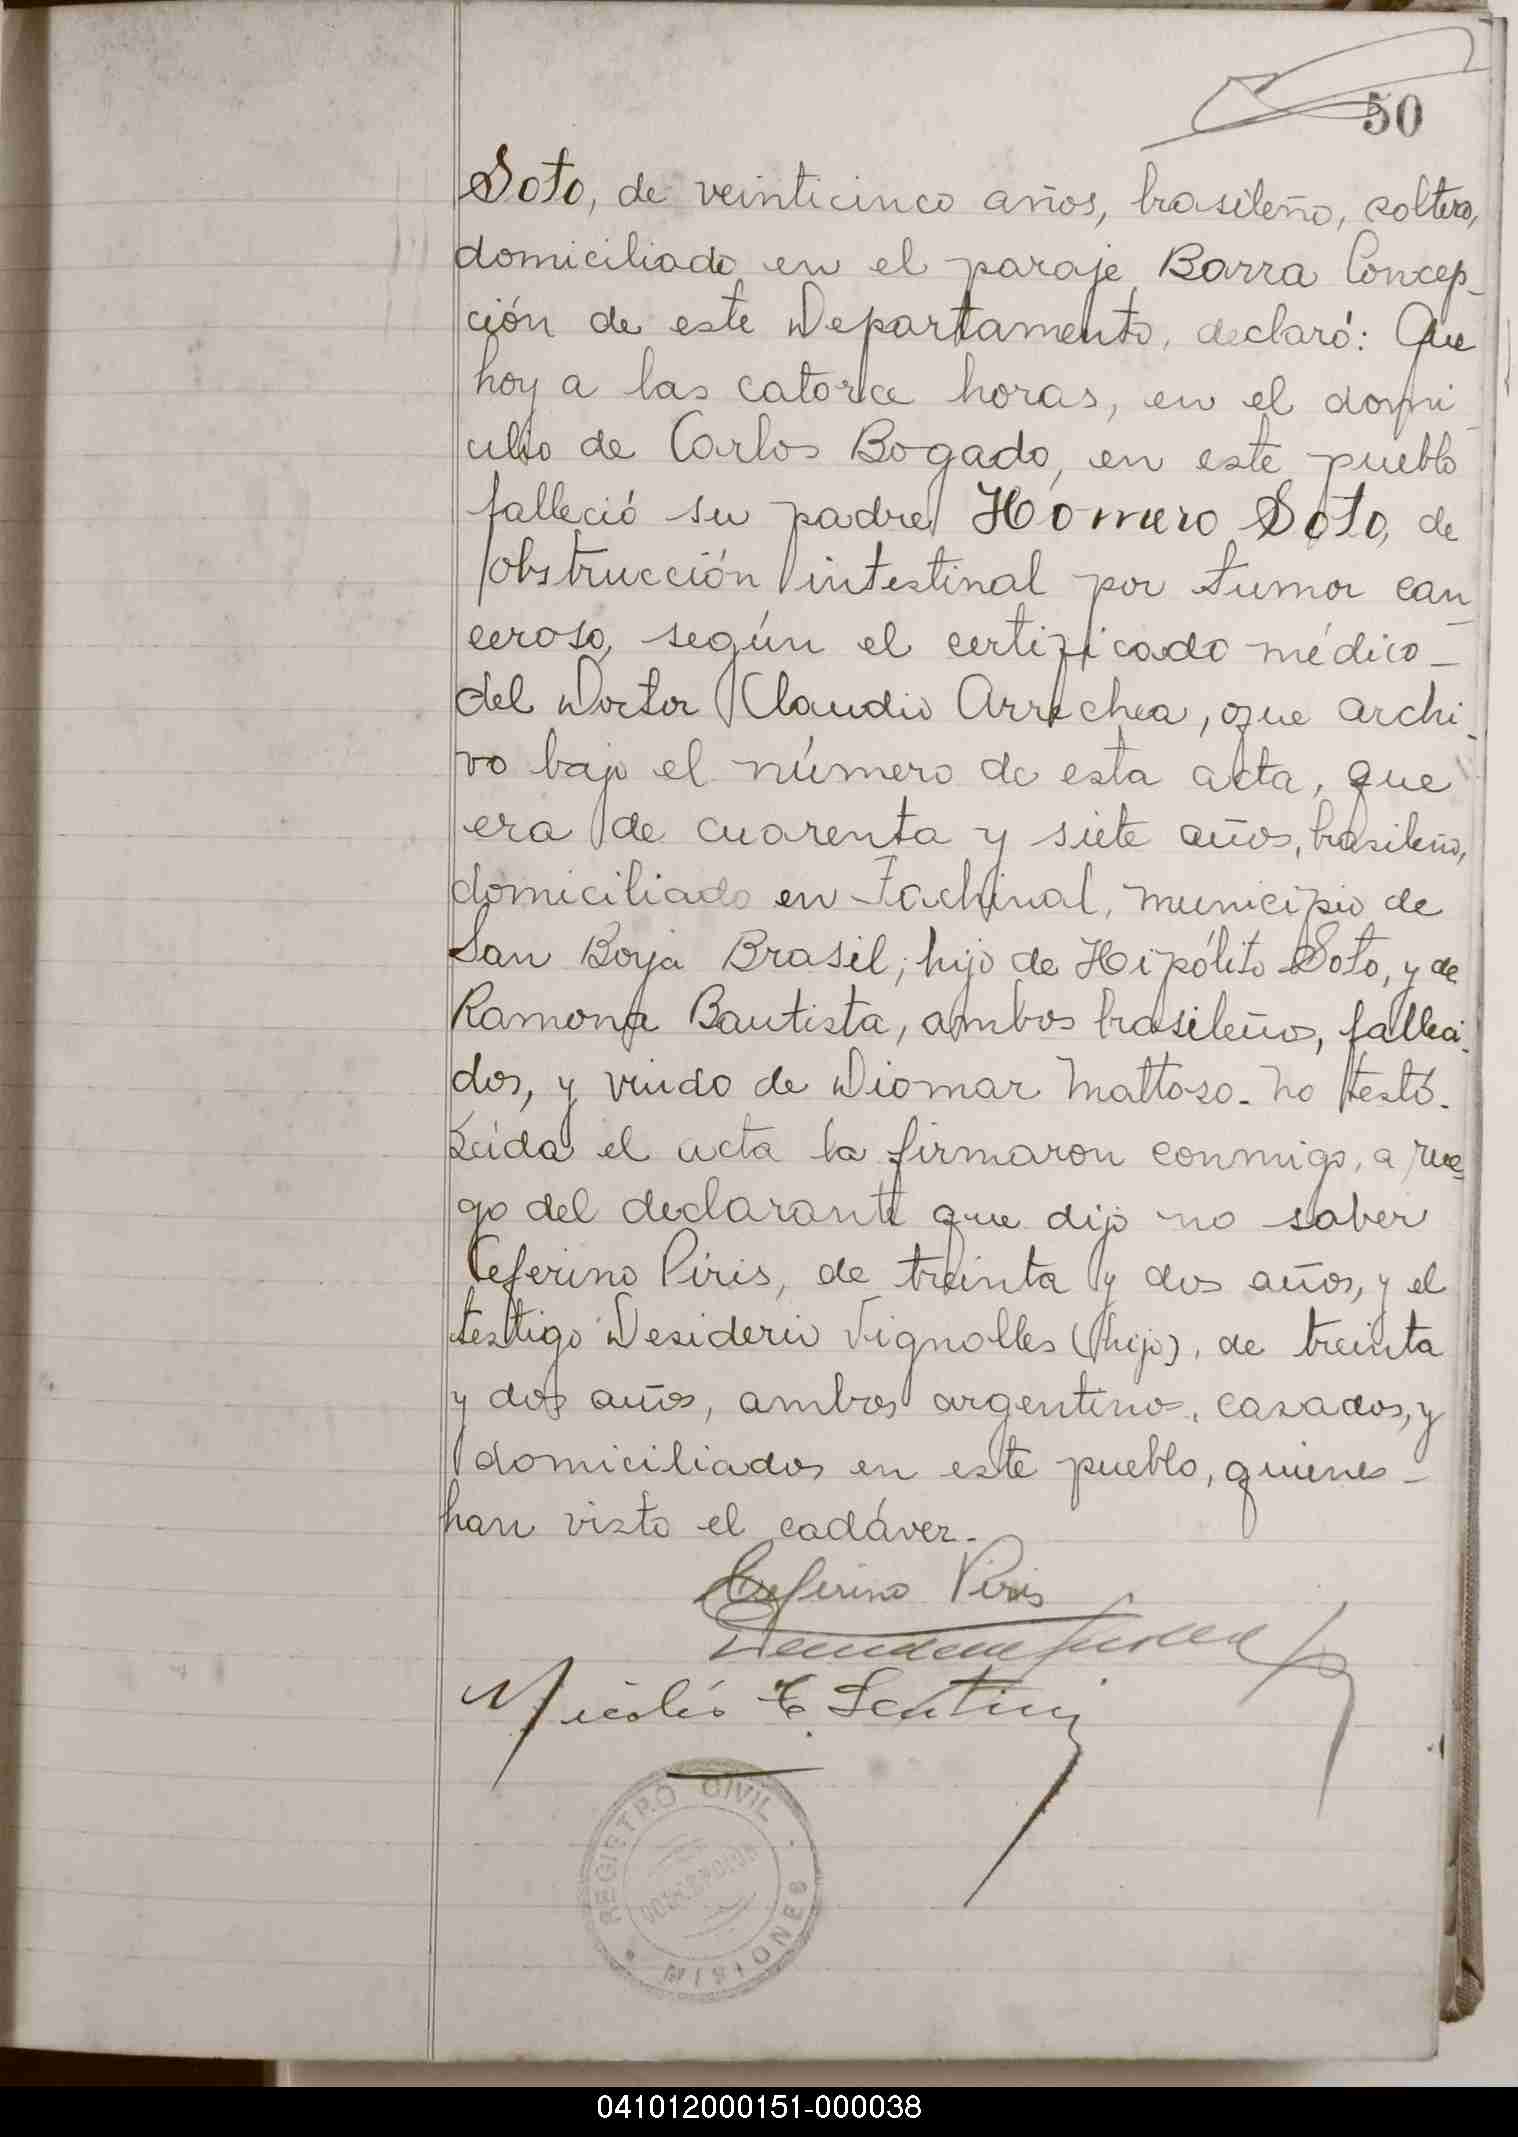 50
Soto, de veinticinco años, brasileño, soltero,
domiciliado en el paraje Barra Concep-
ción de este Departamento, declaró: Que
hoy a las catorce horas, en el domi-
cilio de Carlos Bogado, en este pueblo
falleció su padre Homero Soto, de
obstrucción intestinal por tumor can-
ceroso, según el certificado médico-
del Doctor Claudio Arrechea, que archi-
vo bajo el número de esta acta, que
era de cuarenta y siete años, brasileño,
domiciliado en Fachinal, municipio de
San Borja Brasil, hijo de Hipólito Soto, y de
Ramona Bautista, ambos brasileños, falleci-
dos, y viudo de Diomar Mattoso. No testó.
Leída el acta la firmaron conmigo, a rue-
go del declarante que dijo no saber
Ceferino Piris, de treinta y dos años, y el
testigo Desiderio Vignolles (hijo), de treinta
y dos años, ambos argentinos, casados, y
domiciliados en este pueblo, quienes-
han visto el cadáver.-
Ceferino Piris
REGISTRO CIVIL
MISIONES
041012000151-000038